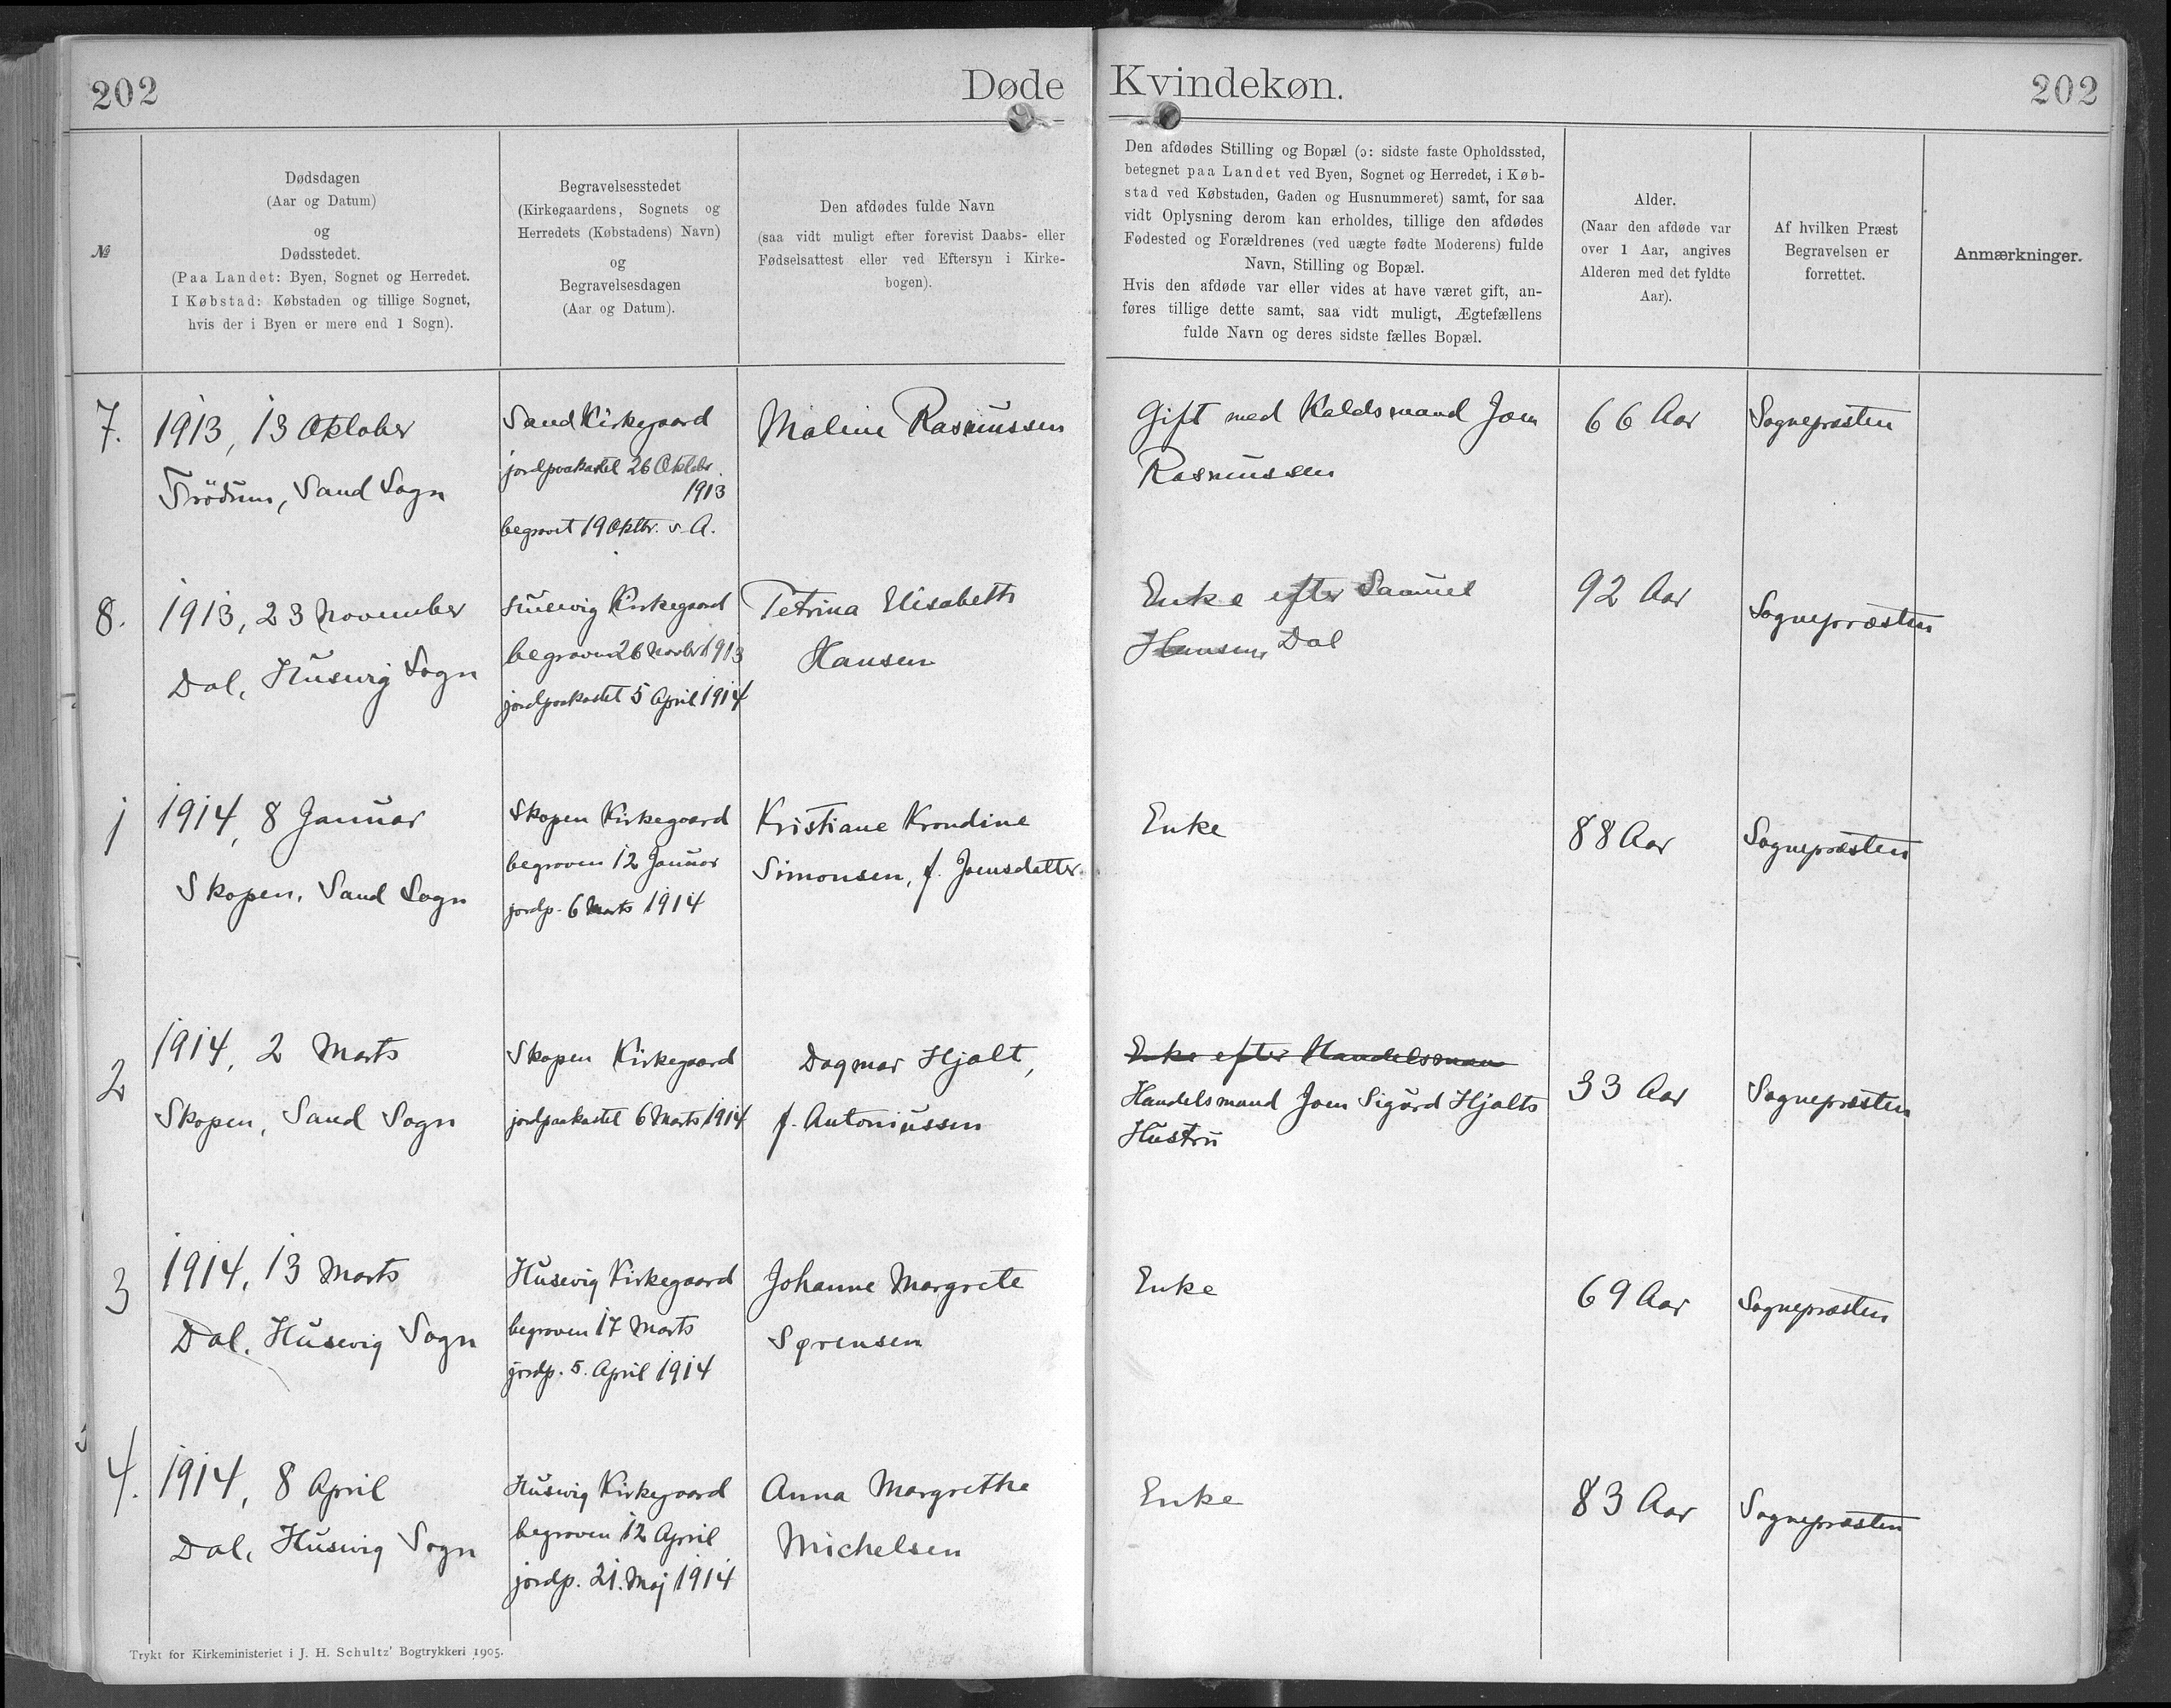 202
Døde
Kvindekøn.
202
№
Dødsdagen
(Aar og Datum)
og
Dødsstedet.
(Paa Landet: Byen, Sognet og Herredet.
I Købstad: Købstaden og tillige Sognet,
hvis der i Byen er mere end 1 Sogn).
Begravelsesstedet
(Kirkegaardens, Sognets og
Herredets (Købstadens) Navn)
og
Begravelsesdagen
(Aar og Datum).
Den afdødes fulde Navn
(saa vidt muligt efter forevist Daabs- eller
Fødselsattest eller ved Eftersyn i Kirke-
bogen).
Den afdødes Stilling og Bopæl (ɔ: sidste faste Opholdssted,
betegnet paa Landet ved Byen, Sognet og Herredet, i Køb-
stad ved Købstaden, Gaden og Husnummeret) samt, for saa
vidt Oplysning derom kan erholdes, tillige den afdødes
Fødested og Forældrenes (ved uægte fødte Moderens) fulde
Navn, Stilling og Bopæl.
Hvis den afdøde var eller vides at have været gift, an-
føres tillige dette samt, saa vidt muligt, Ægtefællens
fulde Navn og deres sidste fælles Bopæl.
Alder.
(Naar den afdøde var
over 1 Aar, angives
Alderen med det fyldte
Aar).
Af hvilken Præst
Begravelsen er
forrettet.
Anmærkninger.
7.
1913, 13 Oktober
Trödum, Sand Sogn
Sand Kirkegaard
jordpaakastet 26 Oktobr.
1913
begravet 19 Oktbr. s. A.
Maline Rasmussen
Gift med Kaldsmand Joen
Rasmussen
66 Aar
Sognepræsten
8.
1913, 23 November
Dal, Husevig Sogn
Husevig Kirkegaard
begraven 26 Novbr 1913
jordpaakastet 5 April 1914
Petrina Elisabeth
Hansen
Enke efter Samuel
Hansen, Dal
92 Aar
Sognepræsten
1
1914, 8 Januar
Skopen, Sand Sogn
Skopen Kirkegaard
begraven 12 Januar
jordp. 6 Marts 1914
Kristiane Krondine
Simonsen, f. Joensdatter
Enke
88 Aar
Sognepræsten
2
1914, 2 Marts
Skopen, Sand Sogn
Skopen Kirkegaard
jordpaakastet 6 Marts 1914
Dagmar Hjalt,
f. Antoniussen
Enke efter Handelsman
Handelsmand Joen Sigurd Hjalts
Hustru
33 Aar
Sognepræsten
3
1914, 13 Marts
Dal, Husevig Sogn
Husevig Kirkegaard
begraven 17 Marts
jordp. 5. April 1914
Johanne Margrete
Sørensen
Enke
69 Aar
Sognepræsten
4.
1914, 8 April
Dal, Husevig Sogn
Husevig Kirkegaard
begraven 12 April
jordp. 21. Maj 1914
Anna Margrethe
Michelsen
Enke
83 Aar
Sognepræsten
Trykt for Kirkeministeriet i J. H. Schultz' Bogtrykkeri 1905.